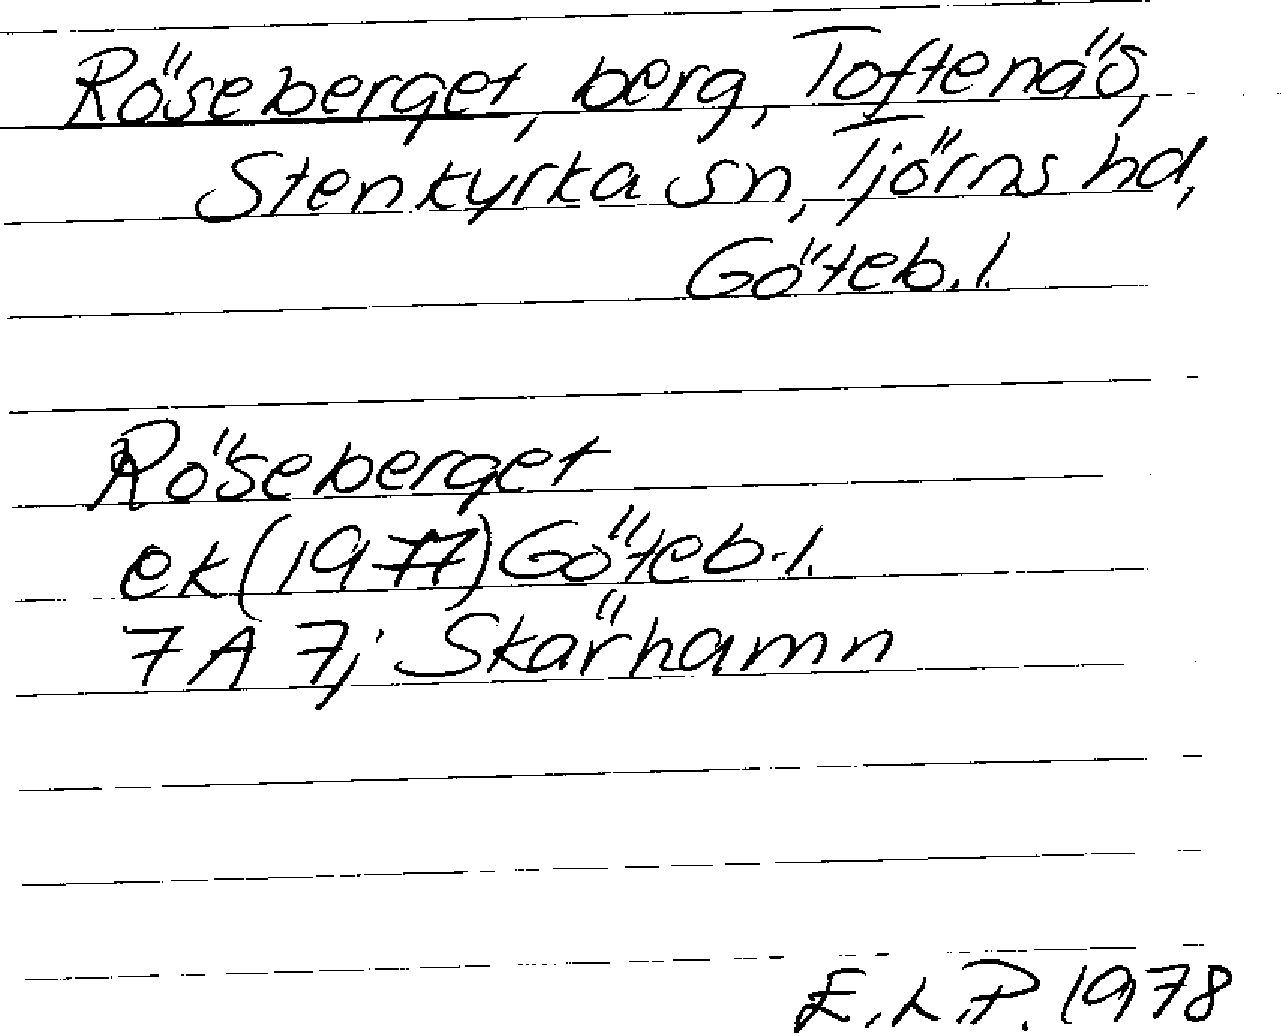 Röseberget, berg, Toftenäs,
Stenkyrka sn, Tjörns hd,
Göteb. l.
Röseberget
ek (1977) Göteb. l.
7A 7j Skärhamn
E.L.P. 1978